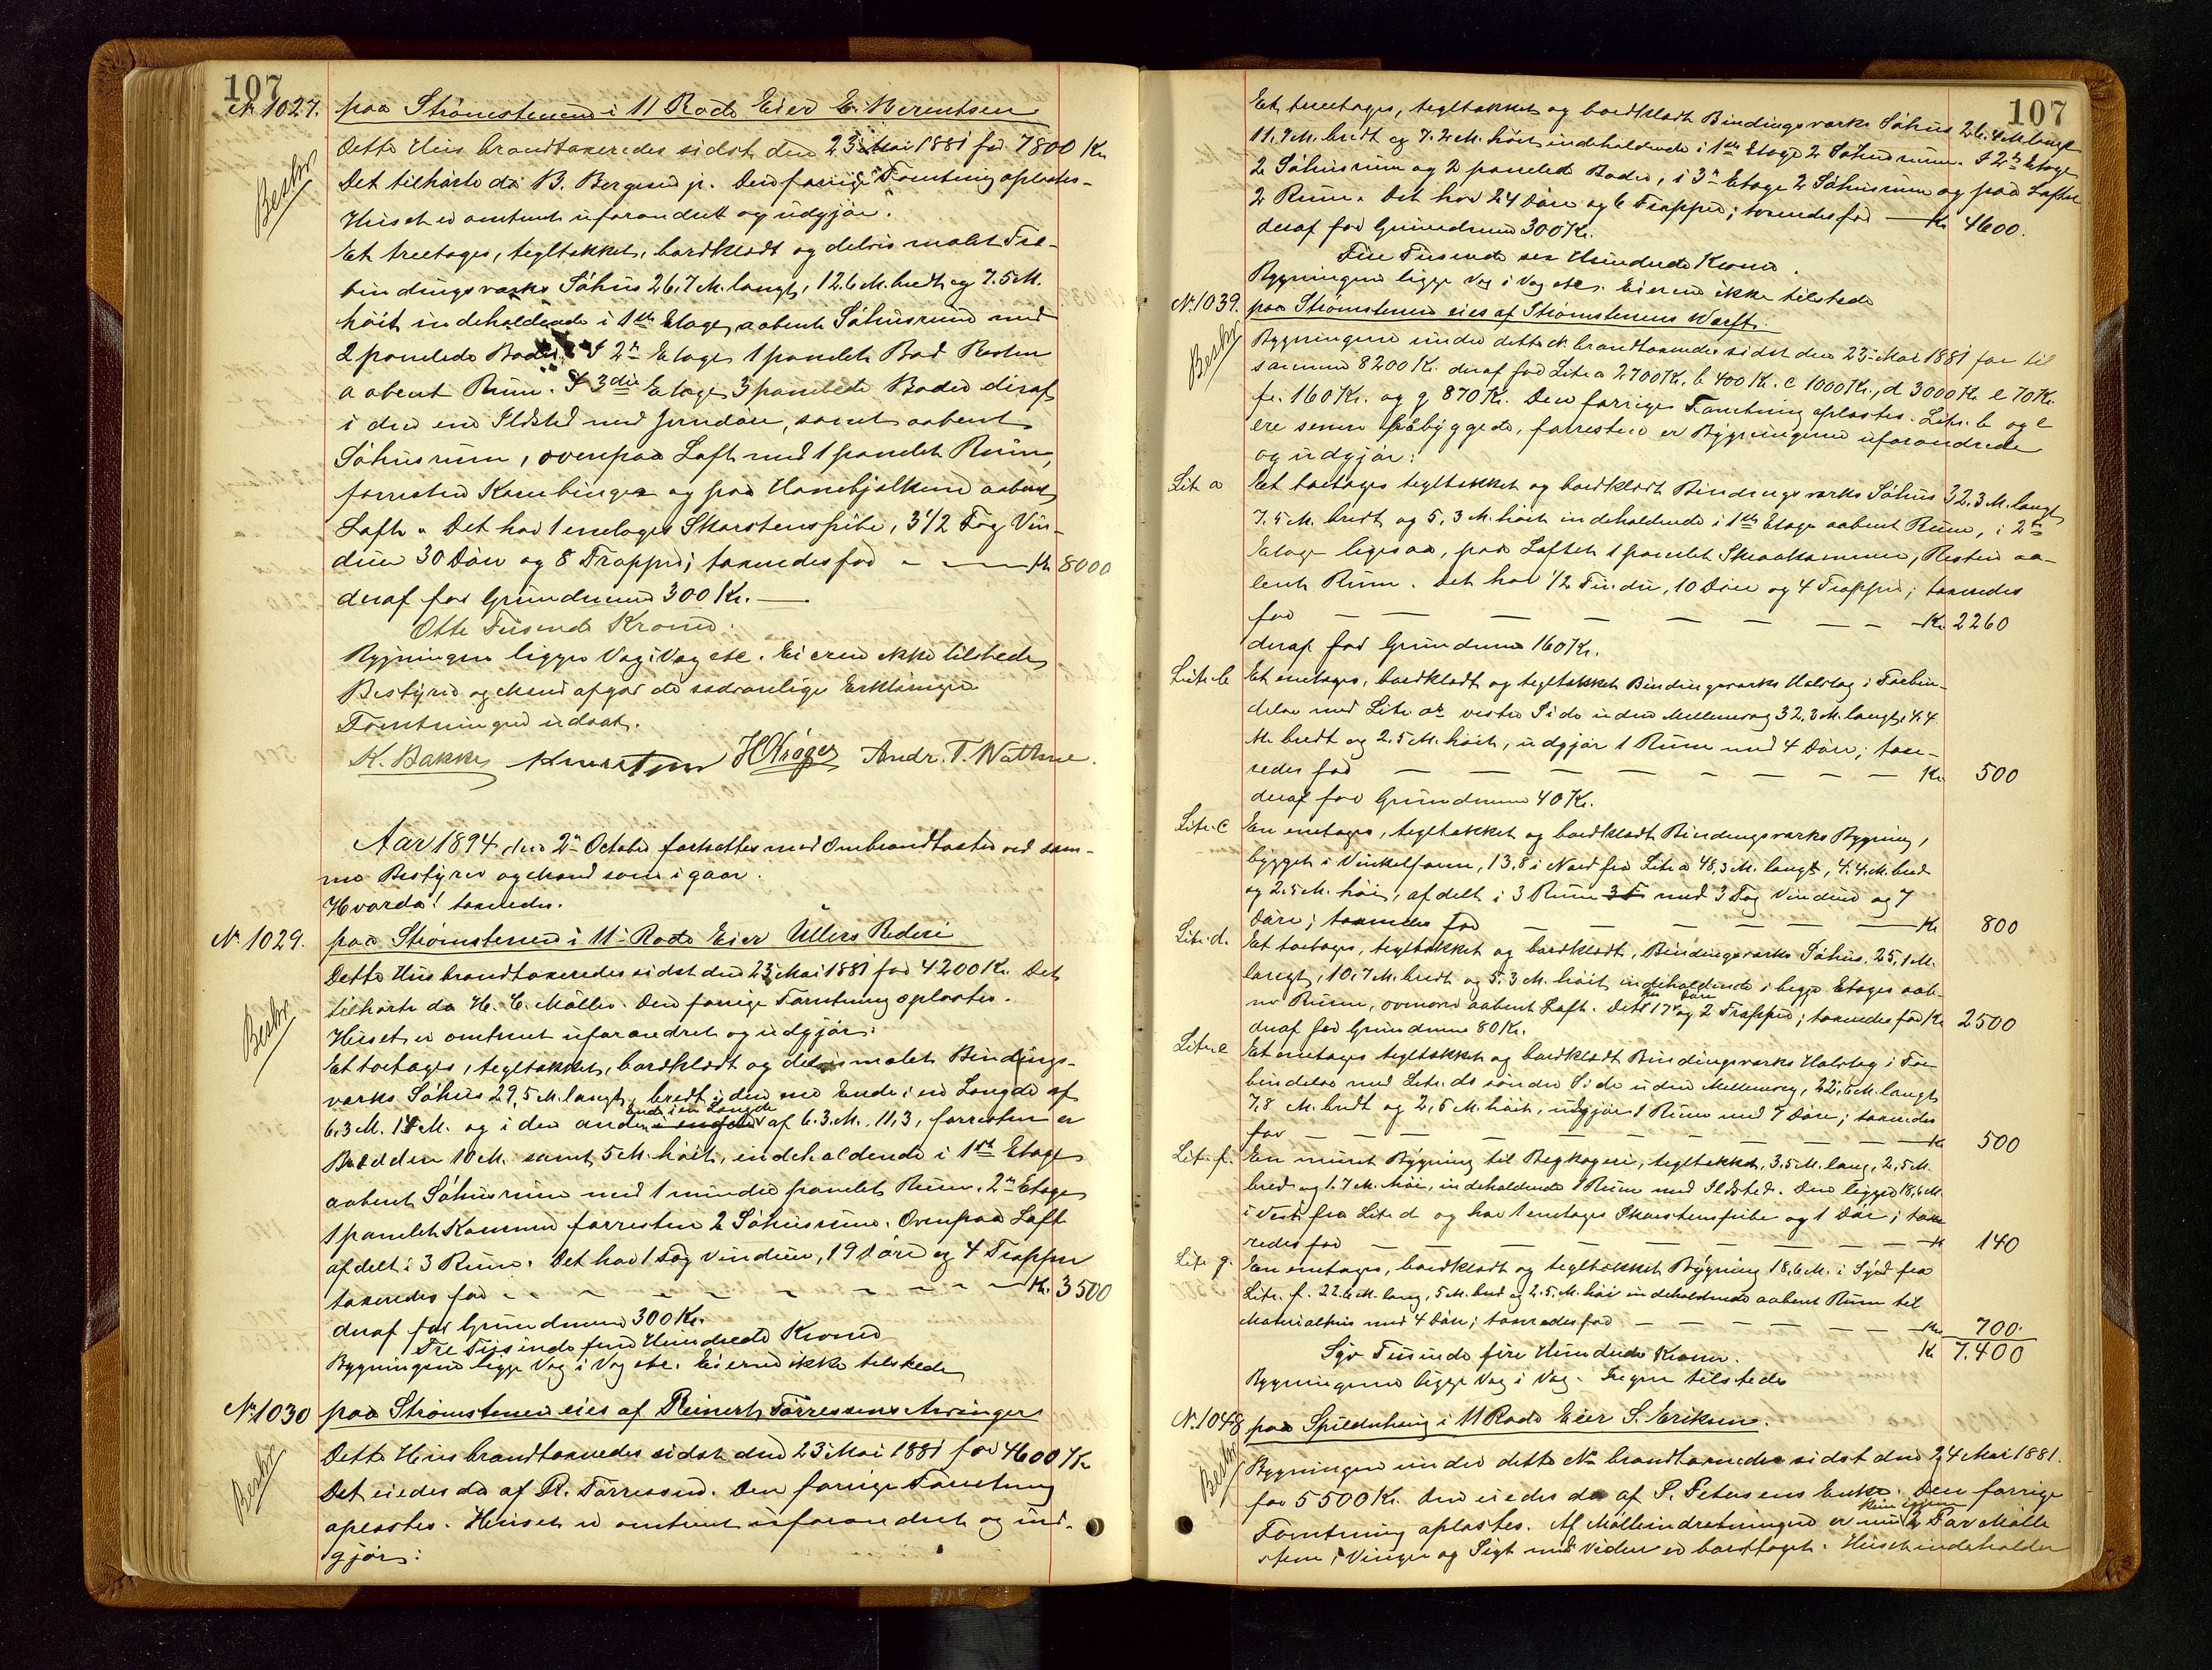 107
No 1027. paa Strømstenen i 11 Rode Eier E. Berentsen
Dette Huus brandtaxeredes sidst den 23 Mai 1881 for 7800 Kr.
Beskr
Det tilhørte da B. Bergesen jr. Den forrige Taxtning oplæstes.
Huset er omtrent uforandret og udgjør:
Et treetages, tegltækket, bordklædt og delvis malet Træ-
bindingsværks Søhus 26,7 M. langt, 12.6 M. bredt og 7.5 M.
høit indeholdende i 1ste Etage aabent Søhusrum med
2 panelede Boder. I 2n Etage 1 panelet Bod Resten
aabent Rum. I 3die Etage 3 panelede Boder deraf
i den ene Ildsted med Jerndøre, samt aabent
Søhusrum, ovenpaa Loft med 1 panelet Rum,
forresten Kornbinger og paa Hanebjelkerne aabent
Loft. Det har 1 enetages Skorstenspibe, 3 1/2 Fag Vin-
duer 30 Døre og 8 Trapper; taxeredes for - - - Kr. 8000
deraf for Grundmuren 300 Kr. —
Otte Tusende Kroner.
Bygningen ligger Væg i Væg etc. Eieren ikke tilstede
Bestyrer og Mænd afgav de sædvanlige Erklæringer
Taxtningen udsat.
K. Bakke Knudsen H Krøger Andr. T. Wathne.
Aar 1894 den 2n October fortsattes med Ombrandtaxten ved sam-
me Bestyrer og Mænd som i gaar.
Hvorda! taxeredes.
No 1029. paa Strømstenen i 11 Rode Eier Ullers Rederi
Dette Hus brandtaxeredes sidst den 23 Mai 1881 for 4200 Kr. Det
Beskr
tilhørte da H. C. Møller. Den forrige Taxtning oplæstes.
Huset er omtrent uforandret og udgjør:
Et toetages, tegltækket, bordklædt og delvis malet Bindings-
værks Søhus 29,5 M. langt, bredt i den ene Ende i en Længde af
6,3 M. 14 M. og i den anden Ende i en Længde af 6.3. M. 11,3, forresten er
Bredden 10 M. samt 5 M. høit, indeholdende i 1ste Etage
aabent Søhusrum med 1 mindre panelet Rum. 2n Etage
1 panelet Kammer forresten 2 Søhusrum. Ovenpaa Loft
afdelt i 3 Rum. Det har 1 Fag Vinduer, 19 Døre og 4 Trapper
taxeredes for - - - Kr. 3500
deraf for Grundmuren 300 Kr.
Tre Tusinde fem Hundrede Kroner
Bygningerne ligge Væg i Væg etc. Eieren ikke tilstede
No 1030 paa Strømstenen eies af Reinert Tørressens Arvinger
Dette Hus brandtaxeredes sidst den 23 Mai 1881 for 4600 Kr
Beskr
Det eiedes da af R. Tørressen. Den forrige Taxtning
oplæstes. Huset er omtrent uforandret og ud-
gjør:
107
Et treetages, tegltækket og bordklædt Bindingsværks Søhus 26.4 M langt
11,9 M. bredt og 7.2 M. høit indeholdende i 1ste Etage 2 Søhusrum. I 2n Etage
2 Søhusrum og 2 panelede Boder, i 3n Etage 2 Søhusrum og paa Loftet
2 Rum. Det har 24 Døre og 6 Trapper; taxeredes for — Kr 4600.
deraf for Grundmur 300 Kr.
Fire Tusende sex Hundrede Kroner.
Bygningen ligger Væg i Væg etc. Eieren ikke tilstede
No 1039. paa Strømstenen eies af Strømstenens Værft.
Beskr
Bygningerne under dette No brandtaxeredes sidst den 23 Mai 1881 for til
sammen 8200 Kr. deraf for Litr a 2700 Kr, b 400 Kr. c 1000 Kr., d 3000 Kr. e 70 Kr.
f. 160 Kr. og g 870 Kr. Den forrige Taxtning oplæstes. Litr. b og e
ere senere paabyggede, forresten er Bygningerne uforandrede
og udgjør:
Lit a Et toetages tegltækket og bordklædt Bindingsværks Søhus 32,3 M. langt
7.5 M. bredt og 5,3 M. høit indeholdende i 1ste Etage aabent Rum, i 2n
Etage ligesaa, paa Loftet 1 panelet Skraakammer, Resten aa-
bent Rum. Det har 1/2 Vindu, 10 Døre og 4 Trapper; taxeredes
for — — — Kr. 2260
deraf for Grundmur 160 Kr.
Litr. b Et enetages, bordklædt og tegltækket Bindingsværks Halvtag i Forbin-
delse med Litr. a's vestre Side uden Mellemvæg 32,3 M. langt, 4.4
M. bredt og 2.5 M. høit, udgjør 1 Rum med 4 Døre; taxe-
redes for — — — Kr. 500
deraf for Grundmur 40 Kr.
Litr. c En enetages, tegltækket og bordklædt Bindingsværks Bygning,
bygget i Vinkelform, 13,8 i Nord fra Litr a 48,3 M. langt, 4.4 M. bred
og 2.5 M. høi, afdelt i 3 Rum med 3 Fag Vinduer og 7
Døre; taxeredes for — — — Kr 800
Litr. d. Et toetages, tegltækket og bordklædt, Bindingsværks Søhus, 25,1 M.
langt, 10,7 M. bredt og 5.3 M. høit indeholdende i begge Etager aab-
ne Rum, ovenover aabent Loft. Det har 17 Døre og 2 Trapper; taxeredes for Kr 2500
deraf for Grundmur 80 Kr.
Litr. e Et enetages tegltækket og bordklædt Bindingsværks Halvtag i For-
bindelse med Litr. ds søndre Side uden Mellemvæg, 22,6 M. langt
7,8 M. bredt og 2,5 M. høit, udgjør 1 Rum med 7 Døre; taxeredes
for — — — Kr 500
Lit. f. En muret Bygning til Begkogeri, tegltækket, 3.5 M. lang, 2,5 M.
bred og 1.7 M. høi, indeholdende 1 Rum med Ildsted. Den ligger 18,6 M.
i Vest fra Litr d og har 1 enetages Skorstenspibe og 1 Dør; taxe
redes for — — — Kr 140
Litr g. En enetages, bordklædt og tegltækket Bygning 18,6 M. i Syd fra
Litr. f. 22.6 M. lang, 5 M. bred og 2.5 M. høi indeholdende aabent Rum til
Materialhus med 4 Døre; taxeredes for — — — Kr 700.
Syv Tusinde fire Hundrede Kroner. Kr 7.400
Bygningerne ligge Væg i Væg. Ingen tilstede
No 1048 paa Spilderhaug i 11 Rode Eier S. Eriksen.
Beskr
Bygningen under dette No brandtaxeredes sidst den 24 Mai 1881.
for 5500 Kr. Den eiedes da af P. Petersens Enke. Den forrige
Taxtning oplæstes. Af Mølleindretningen er nu 2 Par Mølle
stene, Vinger og Sigt med Videre er borttaget. Huset indeholder